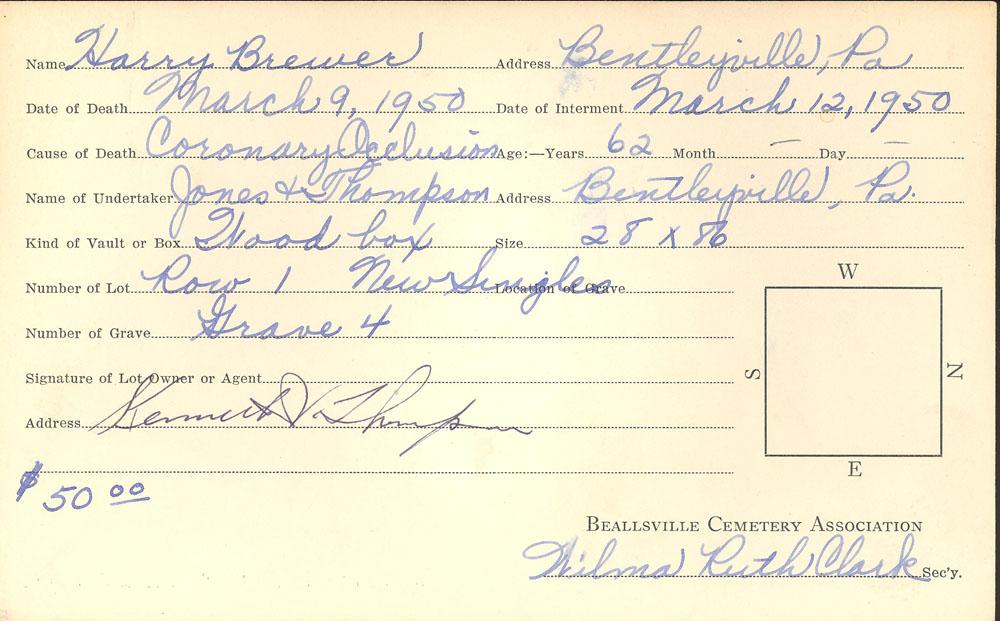 Name Harry Brewer Address Bentleyville, Pa
Date of Death March 9, 1950 Date of Interment March 12, 1950
Cause of Death Coronary Occlusion Age:—Years 62 Month — Day —
Name of Undertaker Jones & Thompson Address Bentleyville, Pa.
Kind of Vault or Box Wood box Size 28 x 86
Number of Lot Row 1 New Singles Location of Grave
W
Number of Grave Grave 4
Signature of Lot Owner or Agent
S N
Address Kenneth V. Thompson
E
$ 50 00
BEALLSVILLE CEMETERY ASSOCIATION
Wilma Ruth Clark Sec'y.